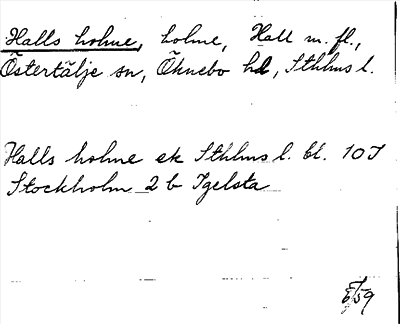 Halls holme, holme, Hall m. fl.,
Östertälje sn, Öknebo hd, Sthlms l.
Halls holme ek Sthlms l. bl. 10J
Stockholm 2 b Igelsta
/59